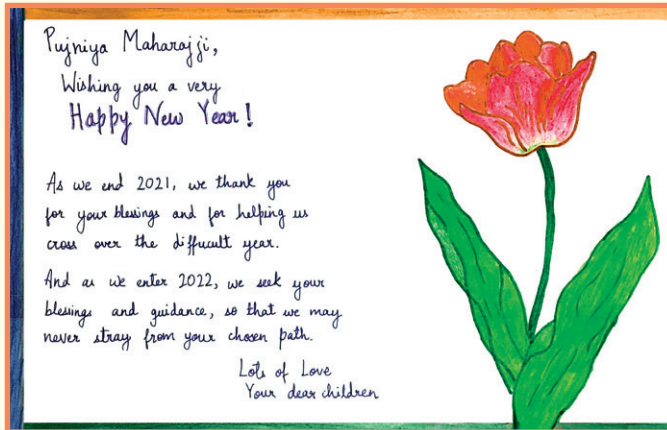 Pujniya Maharajji,
Wishing you a very
Happy New Year!
As we end 2021, we thank you
for your blessings and for helping us
cross over the difficult year.
And as we enter 2022, we seek your
blessings and guidance, so that we may
never stray from your chosen path.
Lots of Love
Your dear children